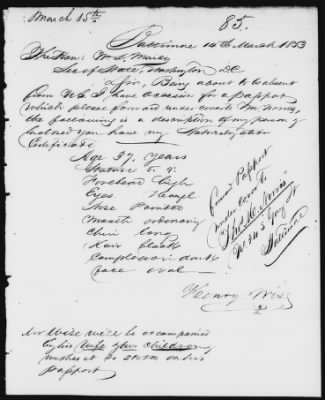 March 15th
85.
Baltimore 14th March 1853
The Hon: W. L. Marcy
Sec of State, Washington D.C
Sir, Being about to absent
from U S I have occasion for a pasport
which please forward under cover to Mr. Norris,
the following is a description of my person &
enclosed you have my Naturalization
Certificate
Age 37. Years
Stature 5. 9.
Forehead high
Eyes Hazel
Nose Pointed
Mouth ordonary
Chin long
Hair black
Complexion dark
face oval
Forward Pasport
under cover to
Thos. H. Norris
No. 345
Baltimore
Henry Wise
Mr Wise will be accompanied
by his Wife & five Children,
wishes it so stated on his
pasport